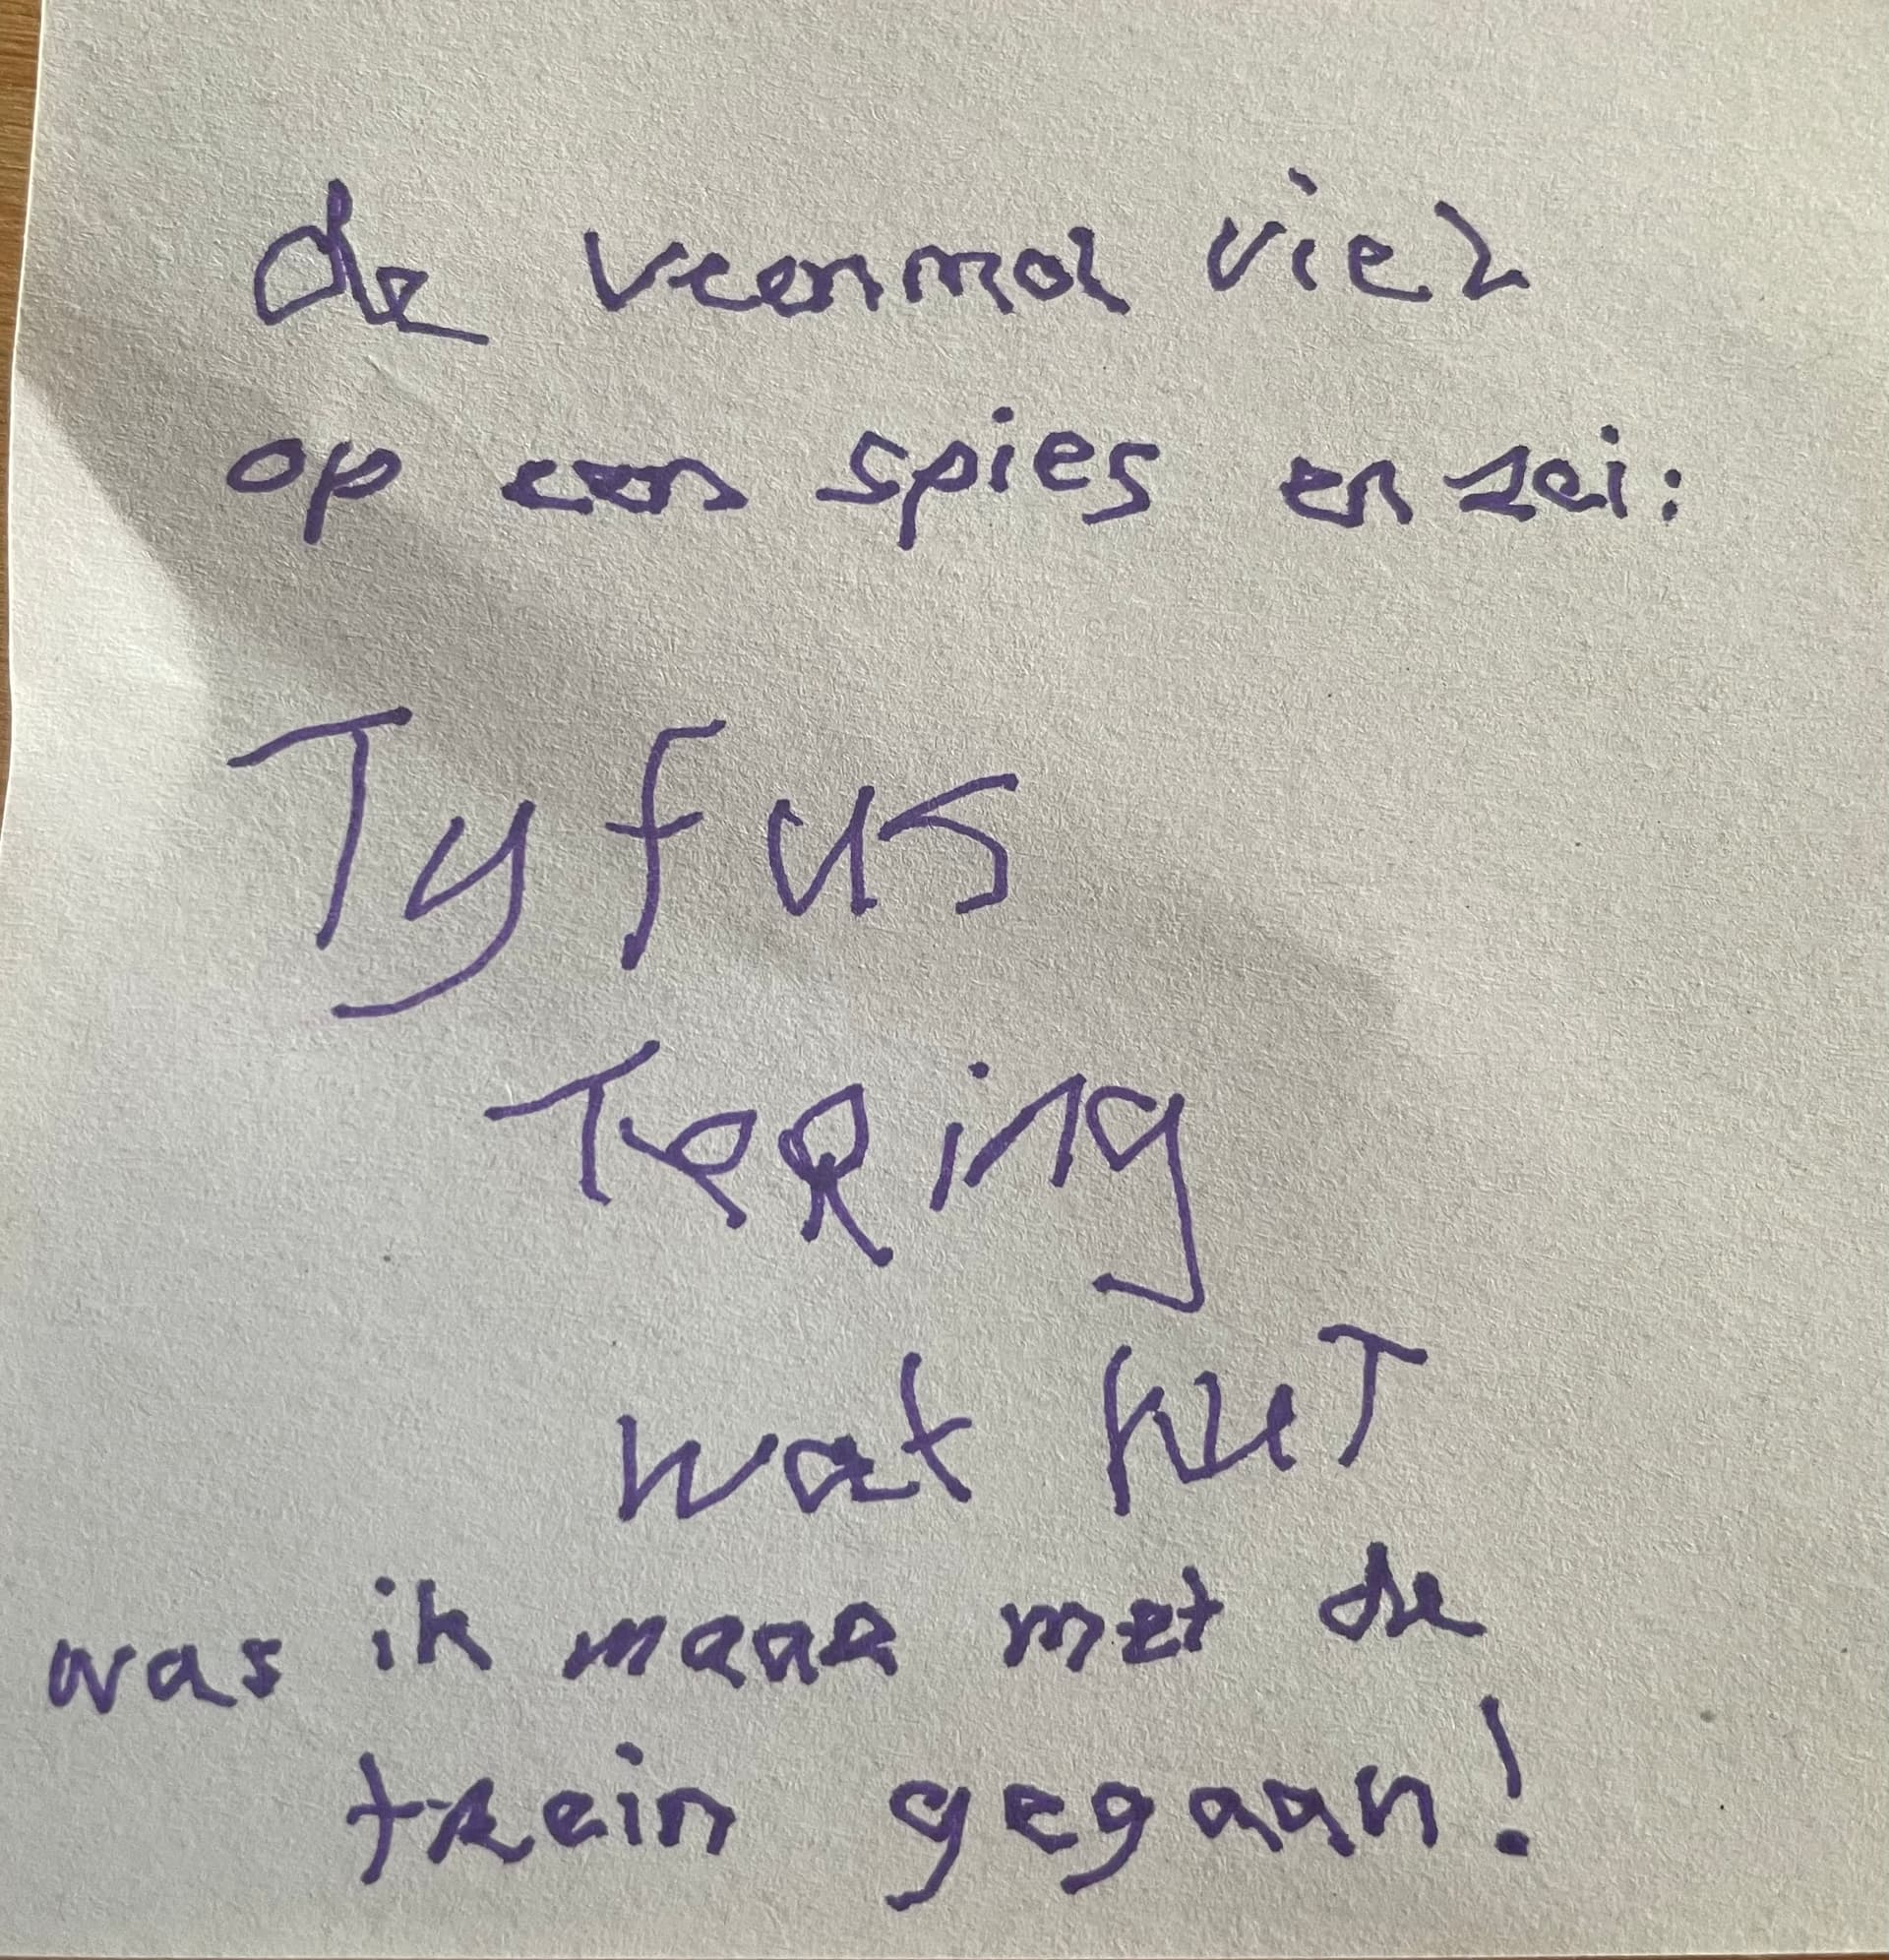 de veenmol viel
op een spies en zei:
Tyfus
TeRing
wat KuT
was ik maar met de
trein gegaan!